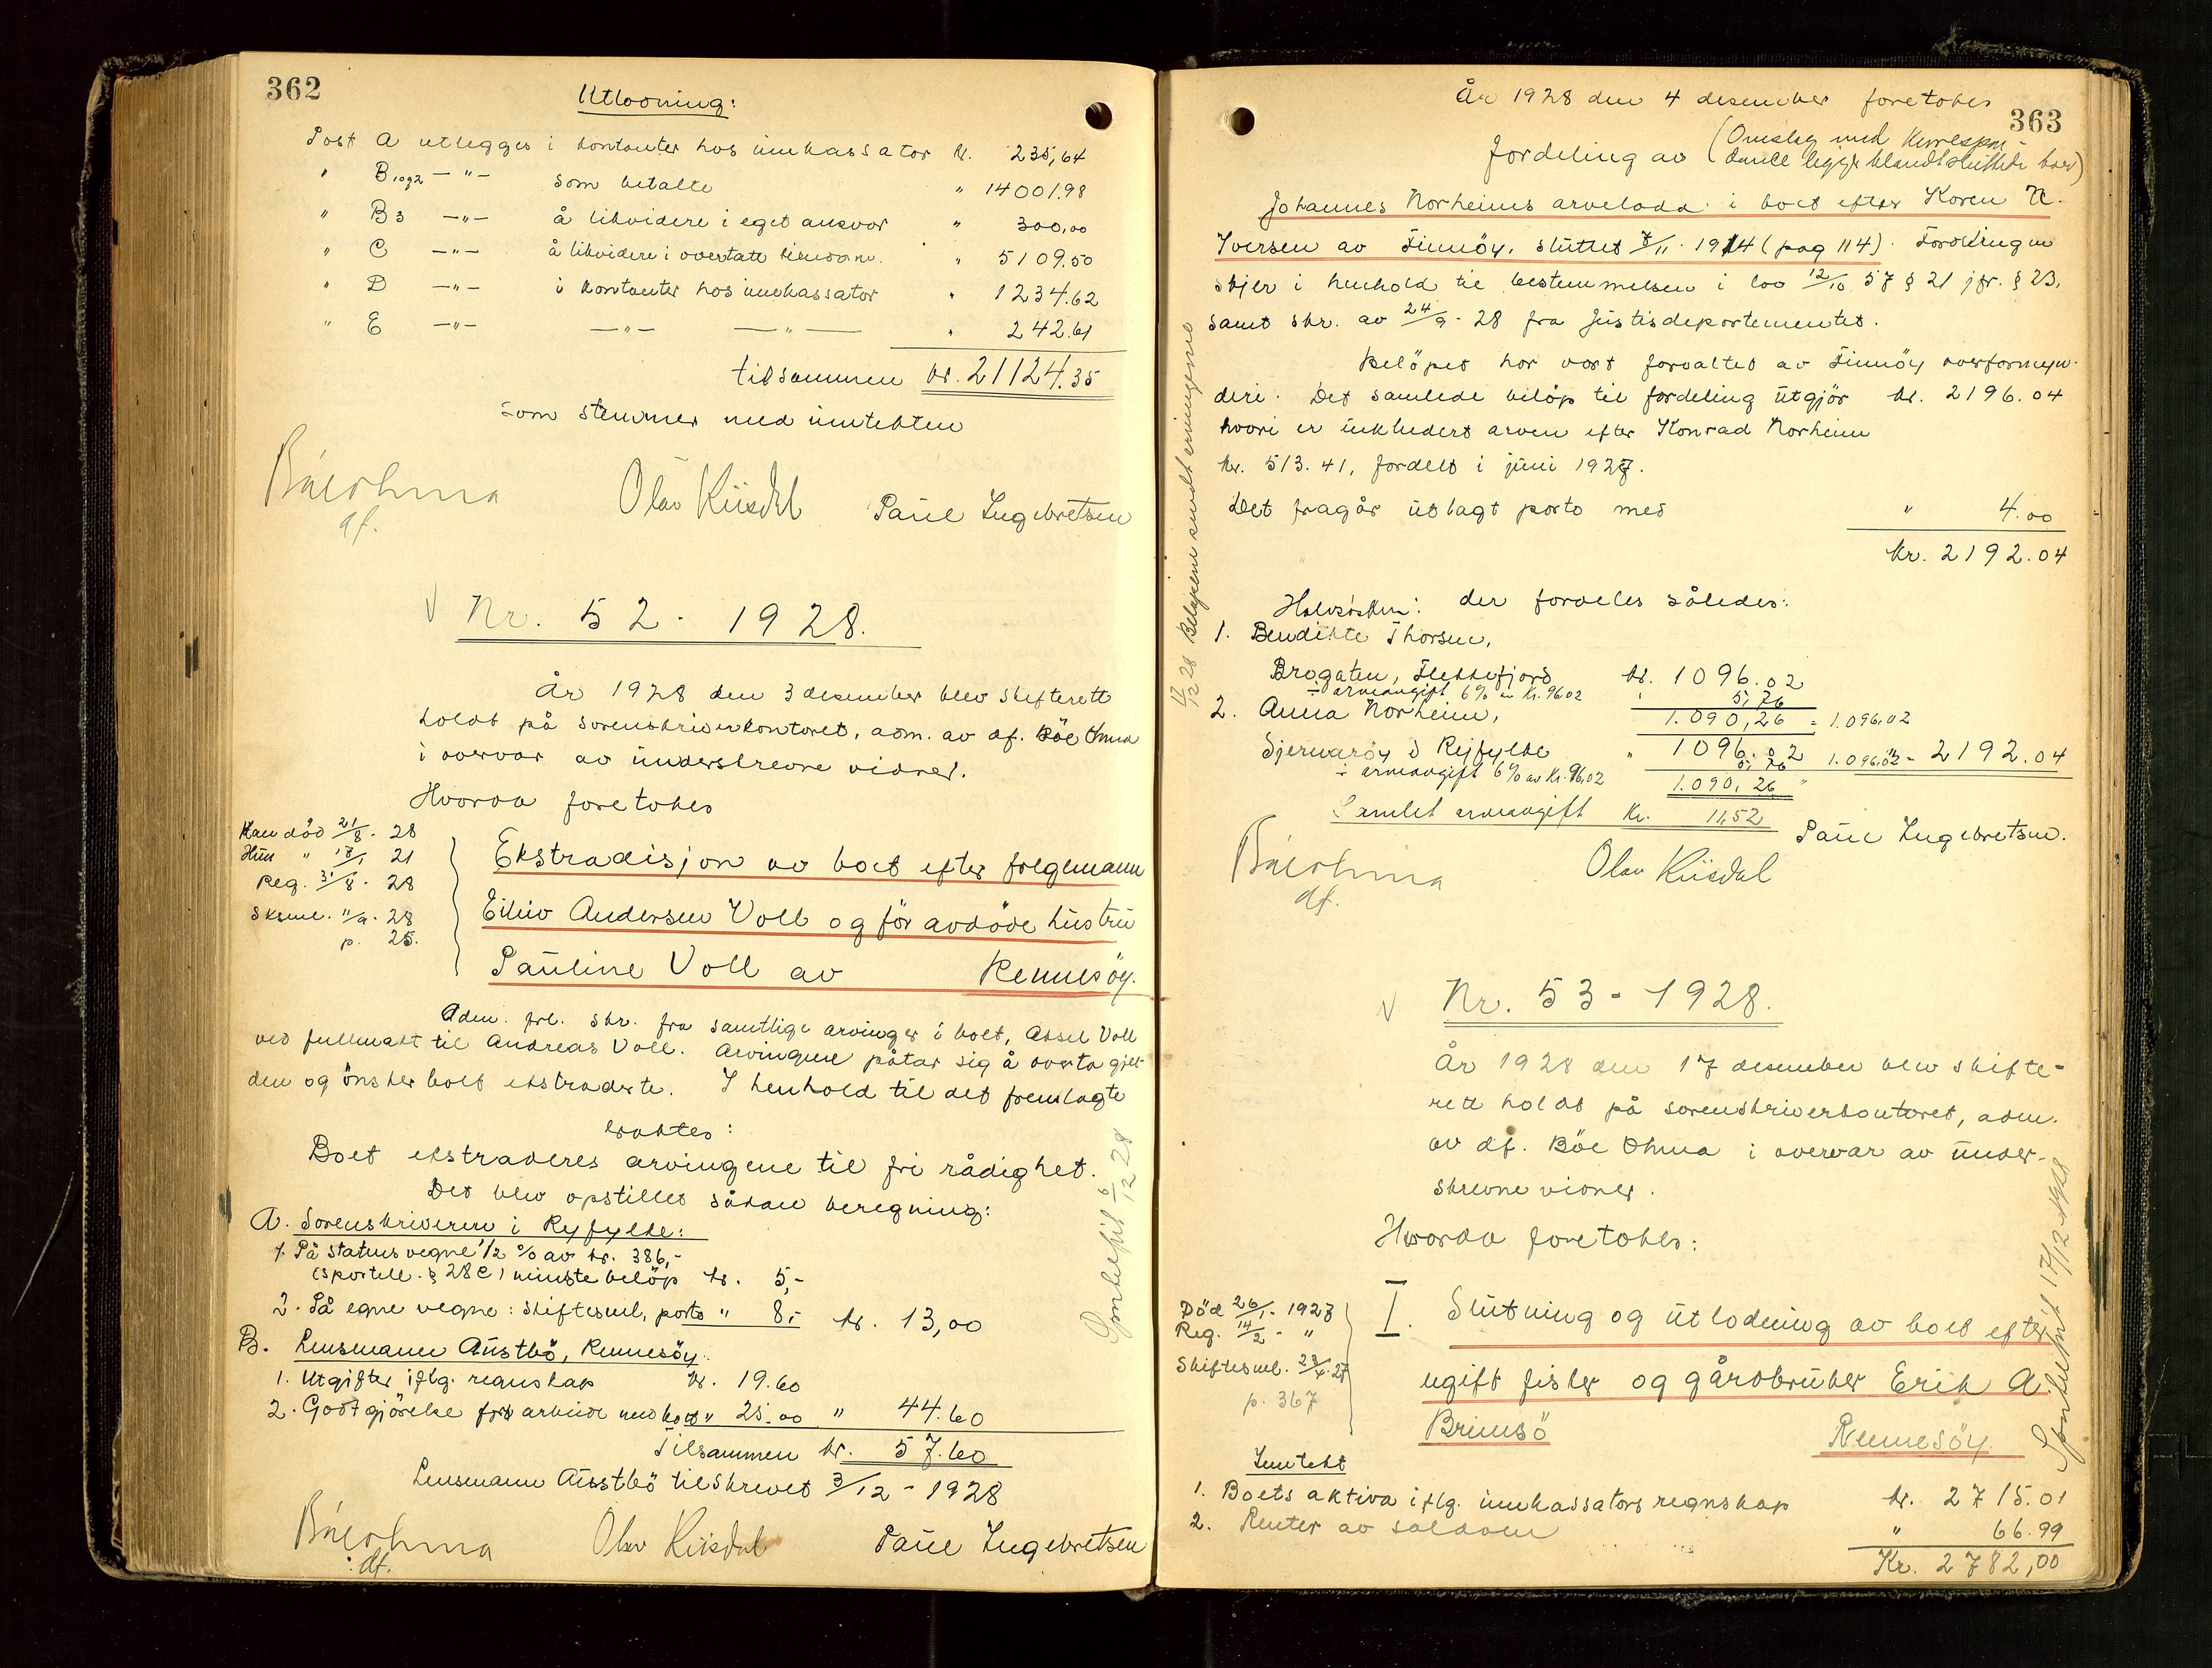 362
Utlodning:
Post A utlegges i kontanter hos innkassator kr. 235,64
" B 1 og 2 -"- som betalte " 14001.98
" B3 -"- å likvidere i eget ansvar " 300,00
" C -"- å likvidere i overtatt eiendom. " 5109.50
" D -"- i kontanter hos innkassator " 1234.62
" E -"- -"- -"- " 242.61
tilsammen kr. 21124.35
som stemmer med inntekten
Olav Kiisdal Paul Ingebretsen
df.
Nr. 52 - 1928.
År 1928 den 3 desember blev skifterett
holdt på sorenskriverkontoret, adm. av df. Böe Ohma
i overvær av underskrevne vidner.
Hvorda foretokes
Han död 21/8 - 28
Hun " 17/1 21
Reg. 31/8 - 28
Sksml. 11/9 - 28
p. 25.
Ekstradisjon av boet efter folgemann
Eilüv Andersen Voll og för avdöde hustru
Pauline Voll av Rennesöy.
Adm. frl. skr. fra samtlige arvinger i boet, Aksel Voll
ved fullmakt til Andreas Voll. Arvingene påtar sig å overta gjel-
den og önsker boet ekstradert. I henhold til det fremlagte
Boet ekstraderes arvingene til fri rådighet.
Det blev opstillet sådan beregning:
A. Sorenskriveren i Ryfylke:
1. På statens vegne 1/2 % av kr. 386,-
(sportell. § 28 c) minste belöp kr. 5,-
2. På egne vegne: skiftesml, porto " 8,- kr. 13,00
B. Lensmann Austbö, Rennesöy.
1. Utgifter iflg. regnskap kr. 19.60
2. Godtgjörelse for arbeide med boet " 25.00 " 44.60
Tilsammen kr. 57.60
Lensmann Austbö tilskrevet 3/12 - 1928
6/12 28
Olav Kiisdal Paul Ingebretsen
df.
363
År 1928 den 4 desember foretokes
fordeling av (Omslag med korrespon-
danse ligger blandt sluttede boer)
Johannes Norheims arvelodd i boet efter Karen N.
Iversen av Finnöy, sluttet 7/11 - 1914 (pag 114). Fordelingen
skjer i henhold til bestemmelsen i lov 12/10 57 § 21 jfr. § 23,
samt skr. av 24/9 - 28 fra Justisdepartementet.
Belöpet har vært forvaltet av Finnöy overformyn-
deri. Det samlede belöp til fordeling utgjör kr. 2196.04
hvori er inkludert arven efter Konrad Norheim
kr. 513.41, fordelt i juni 1927.
Det fragår utlagt porto med " 4.00
kr. 2192.04
der fordeles således:
Halvsösken:
1. Bendikte Thorsen,
Brogaten, Flekkefjord kr. 1096.02
÷ arveavgift 6% av Kr. 96.02 5,76
1.090,26 = 1.096,02
2. Anna Norheim,
Sjernaröy i Ryfylke " 1096.02 1.096,02 = 2192.04
÷ arveavgift 6% av Kr. 96,02 5,76
1.090,26
Samlet arveavgift Kr. 11,52
Paul Ingebretsen.
Olav Kiisdal
df.
17/12 28 Belöpene sendt arvingerne
Nr. 53 - 1928.
År 1928 den 17 desember blev skifte-
rett holdt på sorenskriverkontoret, adm.
av df. Böe Ohma i overvær av under-
skrevne vidner.
Hvorda foretokes:
Död 26/1 - 1927
Reg. 14/2 - "
Skiftesml. 23/4 - 27
p. 367
I. Slutning og utlodning av boet efter
ugift fisker og gårdbruker Erik A.
Brimsö Rennesöy.
Inntekt
1. Boets aktiva iflg. innkassators regnskap kr. 2715.01
2. Renter av saldoen " 66.99
Kr. 2782,00
17/12 1928